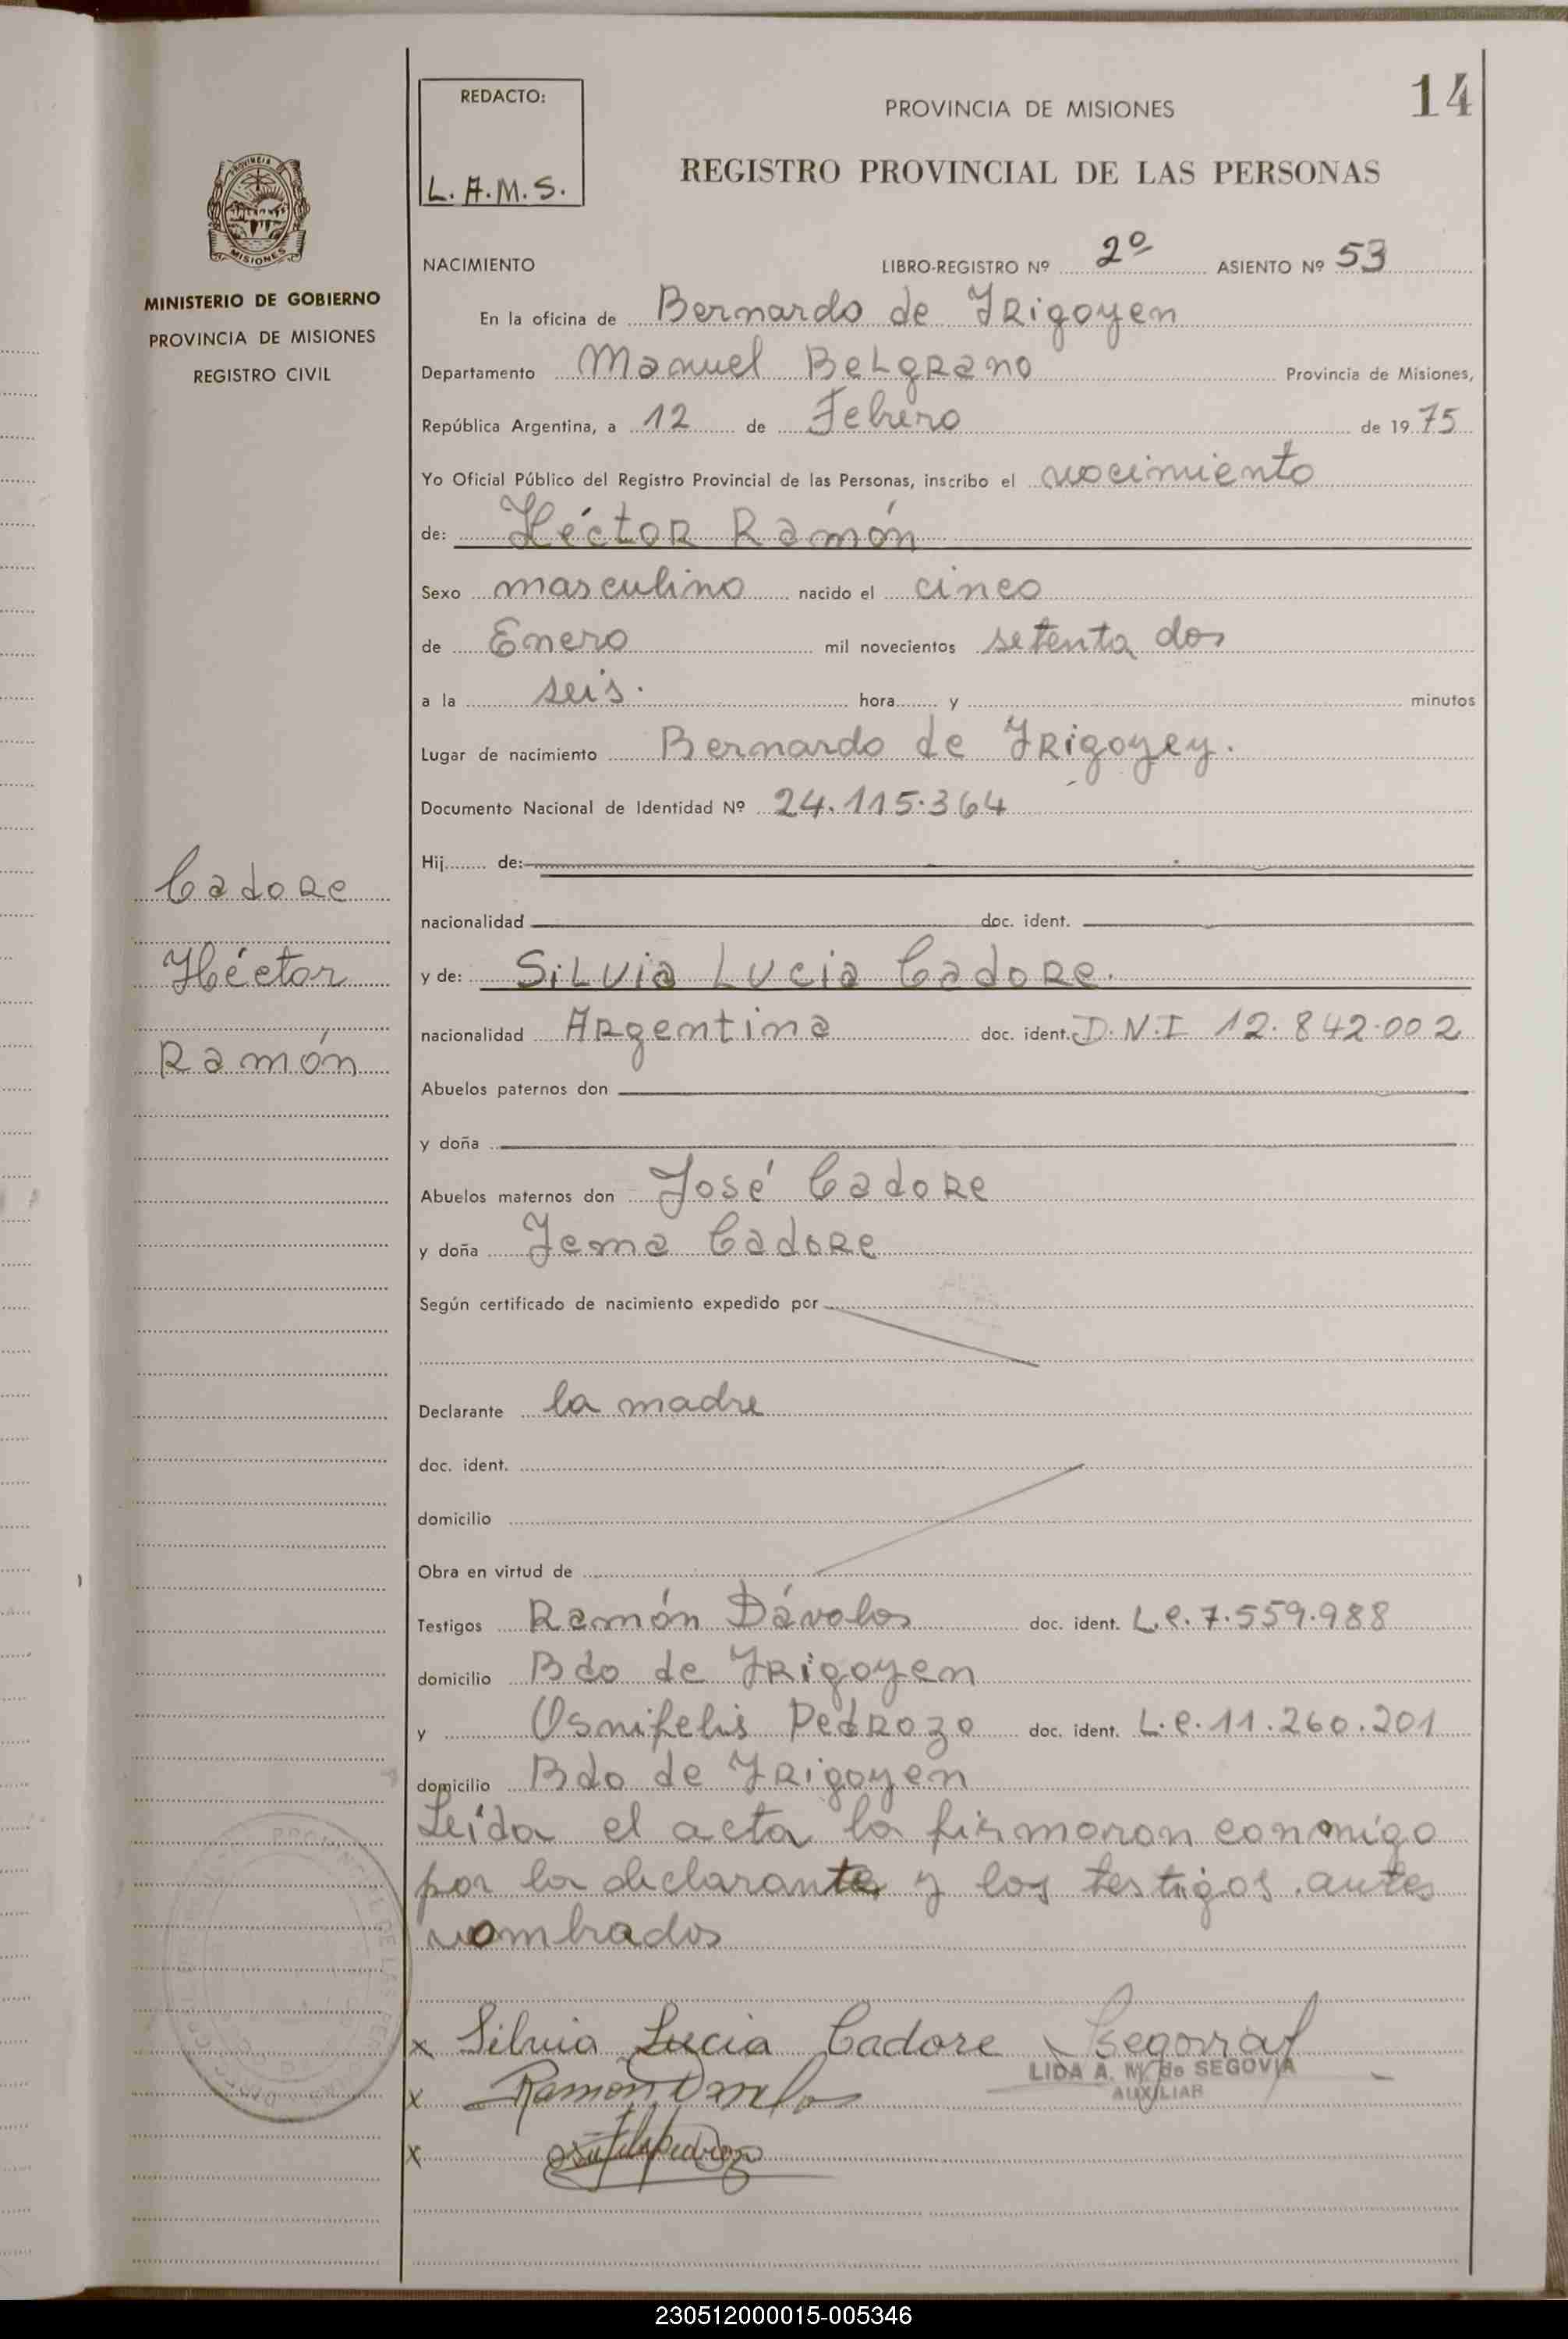 14
REDACTO:
L.A.M.S.
PROVINCIA DE MISIONES
REGISTRO PROVINCIAL DE LAS PERSONAS
PROVINCIA
MISIONES
MINISTERIO DE GOBIERNO
PROVINCIA DE MISIONES
REGISTRO CIVIL
NACIMIENTO LIBRO-REGISTRO Nº 2º ASIENTO Nº 53
En la oficina de Bernardo de Irigoyen
Departamento Manuel Belgrano Provincia de Misiones,
República Argentina, a 12 de Febrero de 1975
Yo Oficial Público del Registro Provincial de las Personas, inscribo el nacimiento
de: Héctor Ramón
Sexo masculino nacido el cinco
de Enero mil novecientos setenta dos
a la seis. hora y minutos
Lugar de nacimiento Bernardo de Irigoyey.
Documento Nacional de Identidad Nº 24.115.364
Hij de:
nacionalidad doc. ident.
y de: Silvia Lucia Cadore.
nacionalidad Argentina doc. ident. D.N.I 12.842.002
Abuelos paternos don
y doña
Abuelos maternos don José Cadore
y doña Jema Cadore
Según certificado de nacimiento expedido por
Declarante la madre
doc. ident.
domicilio
Obra en virtud de
Testigos Ramón Dávalos doc. ident. L.e.7.559.988
domicilio Bdo de Irigoyen
y Osnifelis Pedrozo doc. ident. L.e.11.260.201
domicilio Bdo de Irigoyen
Leida el acta la firmaron conmigo
por la declarante y los testigos antes
nombrados
Cadore
Héctor
Ramón
x Silvia Lucia Cadore
LIDA A. M. de SEGOVIA
AUXILIAR
x Ramon Davalos
x
230512000015-005346